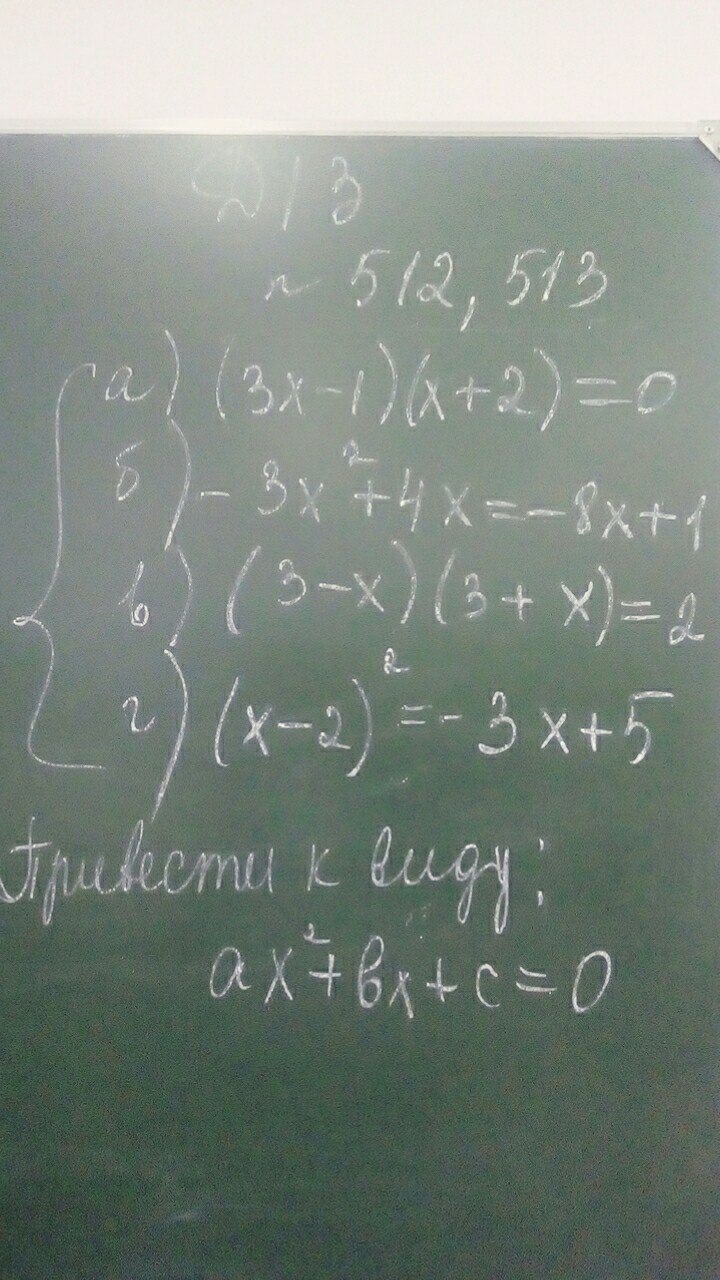 Д/З
~ 512, 513
а) (3x-1)(x+2)=0
б) -3x²+4x=-8x+1
в) (3-x)(3+x)=2
г) (x-2)²=-3x+5
Привести к виду:
ax²+bx+c=0